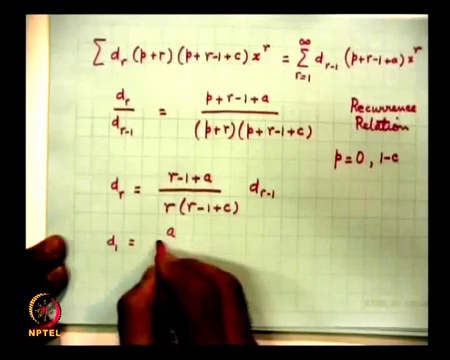 ∑ d_r (p+r) (p+r-1+c) x^r = ∑_{r=1}^{∞} d_{r-1} (p+r-1+a) x^r
d_r / d_{r-1} = (p+r-1+a) / ((p+r)(p+r-1+c))
Recurrence
Relation
p=0, 1-c
d_r = (r-1+a) / (r(r-1+c)) d_{r-1}
d_1 = a
NPTEL